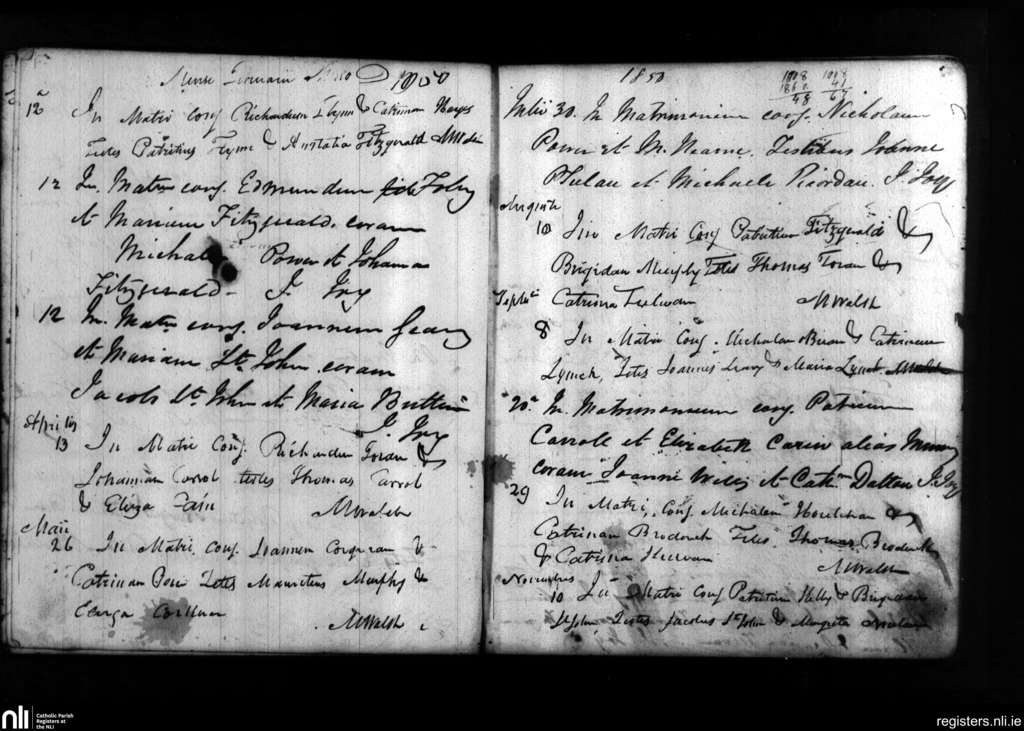 Mense Februarii 1850
12 In Matri Conj Richardum Flynn & Catrinam Hayes
Testes Patritius Flynn & Anstatia Fitzgerald MWalsh
12 In. Matri conj. Edmundum Foley
et Mariam Fitzgerald. coram
Michale Power et Johanna
Fitzgerald - J. Joy
12 In. Matri conj. Joannem Geary
et Mariam St. John. coram
Jacobo St. John et Maria
J. Joy
Aprilis
13 In Matri Conj Richardum Foran &
Johannam Carrol testes Thomas Carrol
& Eliza MWalsh
Maii
26 In Matri, Conj. Joannem Corcoran &
Catrinam Testes Mauritius Murphy &
MWalsh
1850
1008 1008
1860 41
58 67
Julii 30. In Matrimonium conj. Nicholaum
Power et M. Testibus Joanne
Phelan et Michaele Riordan. J Joy
Augusti
10 In Matri Conj Patritium Fitzgerald &
Brigidam Murphy Testes Thomas Foran &
Catrina MWalsh
Septbr
8 In Matri Conj. Nicholam Brien & Catrinam
Lynch, Testes Joannes Leary & Maria Lynch MWalsh
20 In. Matrimonium conj. Patricium
Carroll et Elizabeth alias
coram Joanne et Cath Dalton J. Joy
29 In Matri, Conj Michalem Houlihan &
Catrinam Broderick Testes. Thomas Broderick
& Catrina MWalsh
Novembris
10 In Matri Conj Patritium Kelly & Brigidam
St John Testes Jacobus St John & Margreta
nli
Catholic Parish
Registers at
the NLI
registers.nli.ie